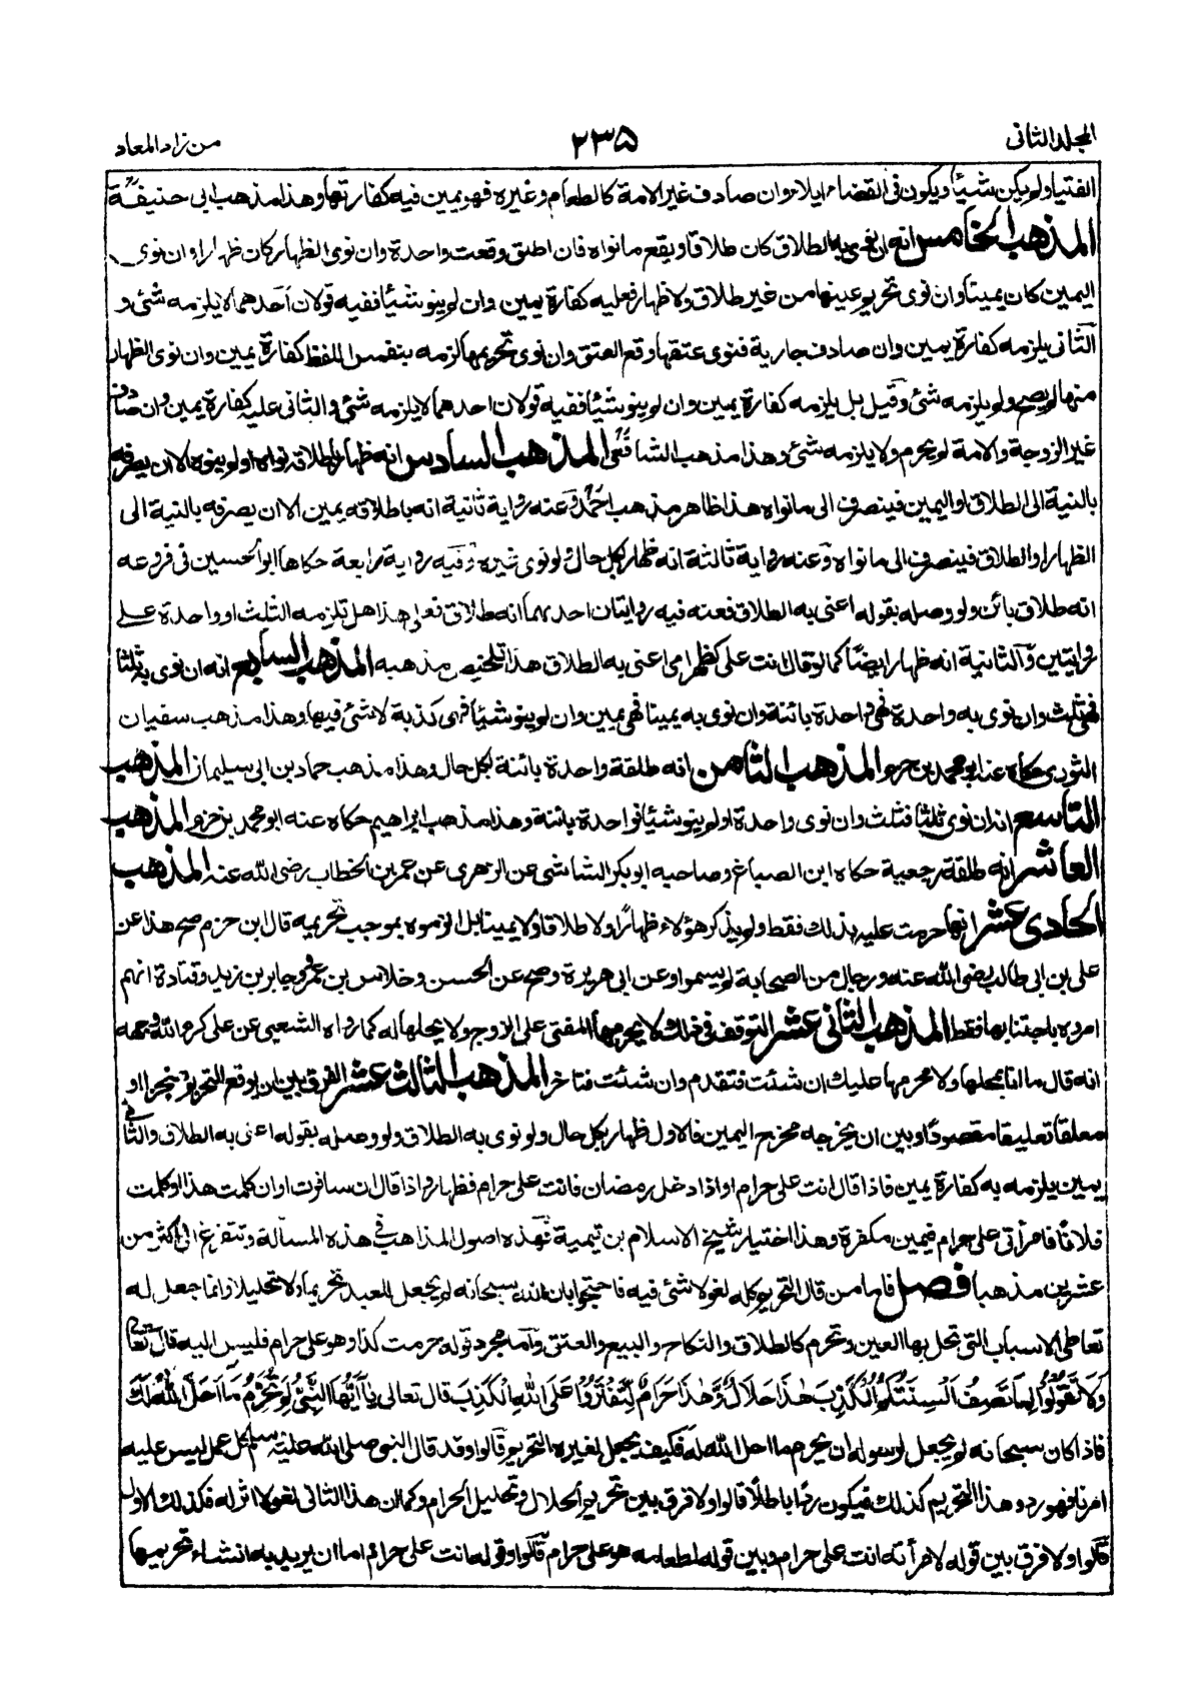 المجلد الثانى
٢٣٥
من زاد المعاد
الفتيا ولم يكن شيئا ويكون فى القضاء ايلاء وان صادف غير الامة كالطعام وغيره فهو يمين فيه كفارتها وهذا مذهب ابى حنيفة
المذهب الخامس انه ان نوى به الطلاق كان طلاقا ويقع ما نواه فان اطلق وقعت واحدة وان نوى الظهار كان ظهارا وان نوى
اليمين كان يمينا وان نوى تحريم عينها من غير طلاق ولا ظهار فعليه كفارة يمين وان لم ينو شيئا ففيه قولان احدهما لا يلزمه شئ و
الثانى يلزمه كفارة يمين وان صادف جارية فنوى عتقها وقع العتق وان نوى تحريمها لزمه بنفس اللفظ كفارة يمين وان نوى الظهار
منها لم يصح ولم يلزمه شئ وقيل بل يلزمه كفارة يمين وان لم ينو شيئا ففيه قولان احدهما لا يلزمه شئ والثانى عليه كفارة يمين وان صادف
غير الزوجة والامة لم يحرم ولا يلزمه شئ وهذا مذهب الشافعى المذهب السادس انه ظهار باطلاقه نواه او لم ينوه الا ان يصرفه
بالنية الى الطلاق او اليمين فينصرف الى ما نواه هذا ظاهر مذهب احمد وعنه رواية ثانية انه باطلاقه يمين الا ان يصرفه بالنية الى
الظهار او الطلاق فينصرف الى ما نواه وعنه رواية ثالثة انه ظهار بكل حال ولو نوى غيره وفيه رواية رابعة حكاها ابو الحسين فى فروعه
انه طلاق بائن ولو وصله بقوله اعنى به الطلاق فعنه فيه روايتان احدهما انه طلاق فعلى هذا هل تلزمه الثلث او واحدة على
روايتين والثانية انه ظهار ايضا كما لو قال انت على كظهر امى اعنى به الطلاق هذا تلخيص مذهبه المذهب السابع انه ان نوى به ثلثا
فهى ثلث وان نوى به واحدة فهى واحدة بائنة وان نوى به يمينا فهى يمين وان لم ينو شيئا فهى كذبة لا شئ فيها وهذا مذهب سفيان
الثورى حكاه عنه ابو محمد بن حزم المذهب الثامن انه طلقة واحدة بائنة بكل حال وهذا مذهب حماد بن ابى سليمان المذهب
التاسع انه ان نوى ثلثا فثلث وان نوى واحدة او لم ينو شيئا فواحدة بائنة وهذا مذهب ابراهيم حكاه عنه ابو محمد بن حزم المذهب
العاشر انه طلقة رجعية حكاه ابن الصباغ وصاحبه ابو بكر الشاشى عن الزهرى عن عمر بن الخطاب رضى الله عنه المذهب
الحادى عشر انها حرمت عليه بذلك فقط ولم يذكر هؤلاء ظهارا ولا طلاقا ولا يمينا بل الزموه بموجب تحريمه قال ابن حزم صح هذا عن
على بن ابى طالب رضى الله عنه ورجال من الصحابة لم يسموا وعن ابى هريرة وصح عن الحسن وخلاس بن عمرو وجابر بن زيد وقتادة انهم
امروه باجتنابها فقط المذهب الثانى عشر التوقف فى ذلك لا يحرمها المفتى على الزوج ولا يحلها له كما رواه الشعبى عن على كرم الله وجهه
انه قال ما انا بمحلها ولا محرمها عليك ان شئت فتقدم وان شئت فتاخر المذهب الثالث عشر الفرق بين ان يوقع التحريم منجزا او
معلقا تعليقا مقصودا وبين ان يخرجه مخرج اليمين فالاول ظهار بكل حال ولو نوى به الطلاق ولو وصله بقوله اعنى به الطلاق والثانى
يمين يلزمه به كفارة يمين فاذا قال انت على حرام او اذا دخل رمضان فانت على حرام فظهار واذا قال ان سافرت او ان كلمت هذا او كلمت
فلانا فامرأتى على حرام فيمين مكفرة وهذا اختيار شيخ الاسلام بن تيمية فهذه اصول المذاهب فى هذه المسألة وتتفرع الى اكثر من
عشرين مذهبا فصل فاما من قال التحريم كله لغو لا شئ فيه فاحتجوا بان الله سبحانه لم يجعل للعبد تحريما ولا تحليلا وانما جعل له
تعاطى الاسباب التى تحل بها العين وتحرم كالطلاق والنكاح والبيع والعتق واما مجرد قوله حرمت كذا وهو على حرام فليس اليه قال تعالى
وَلَا تَقُولُوا لِمَا تَصِفُ اَلْسِنَتُكُمُ الْكَذِبَ هٰذَا حَلَالٌ وَّهٰذَا حَرَامٌ لِّتَفْتَرُوْا عَلَى اللّٰهِ الْكَذِبَ قال تعالى يٰاَيُّهَا النَّبِيُّ لِمَ تُحَرِّمُ مَا اَحَلَّ اللّٰهُ لَكَ
فاذا كان سبحانه لم يجعل لرسوله ان يحرم ما احل الله له فكيف يجعل لغيره التحريم قالوا وقد قال النبى صلى الله عليه وسلم كل عمل ليس عليه
امرنا فهو رد وهذا التحريم كذلك فيكون ردا باطلا قالوا ولا فرق بين تحريم الحلال وتحليل الحرام وكما ان هذا الثانى لغو لا اثر له فكذلك الاول
قالوا ولا فرق بين قوله لامرأته انت على حرام وبين قوله لطعامه هو على حرام قالوا وقوله انت على حرام اما ان يريد به انشاء تحريمها